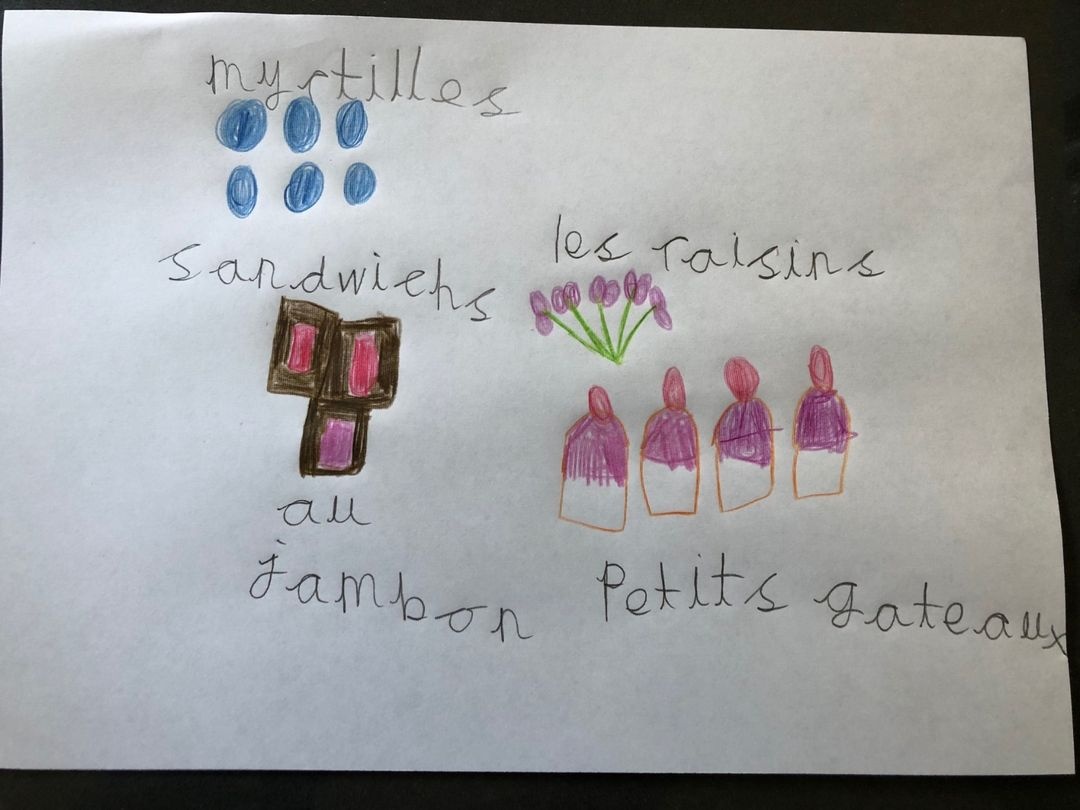 myrtilles
sandwichs
au
jambon
les raisins
Petits gateaux